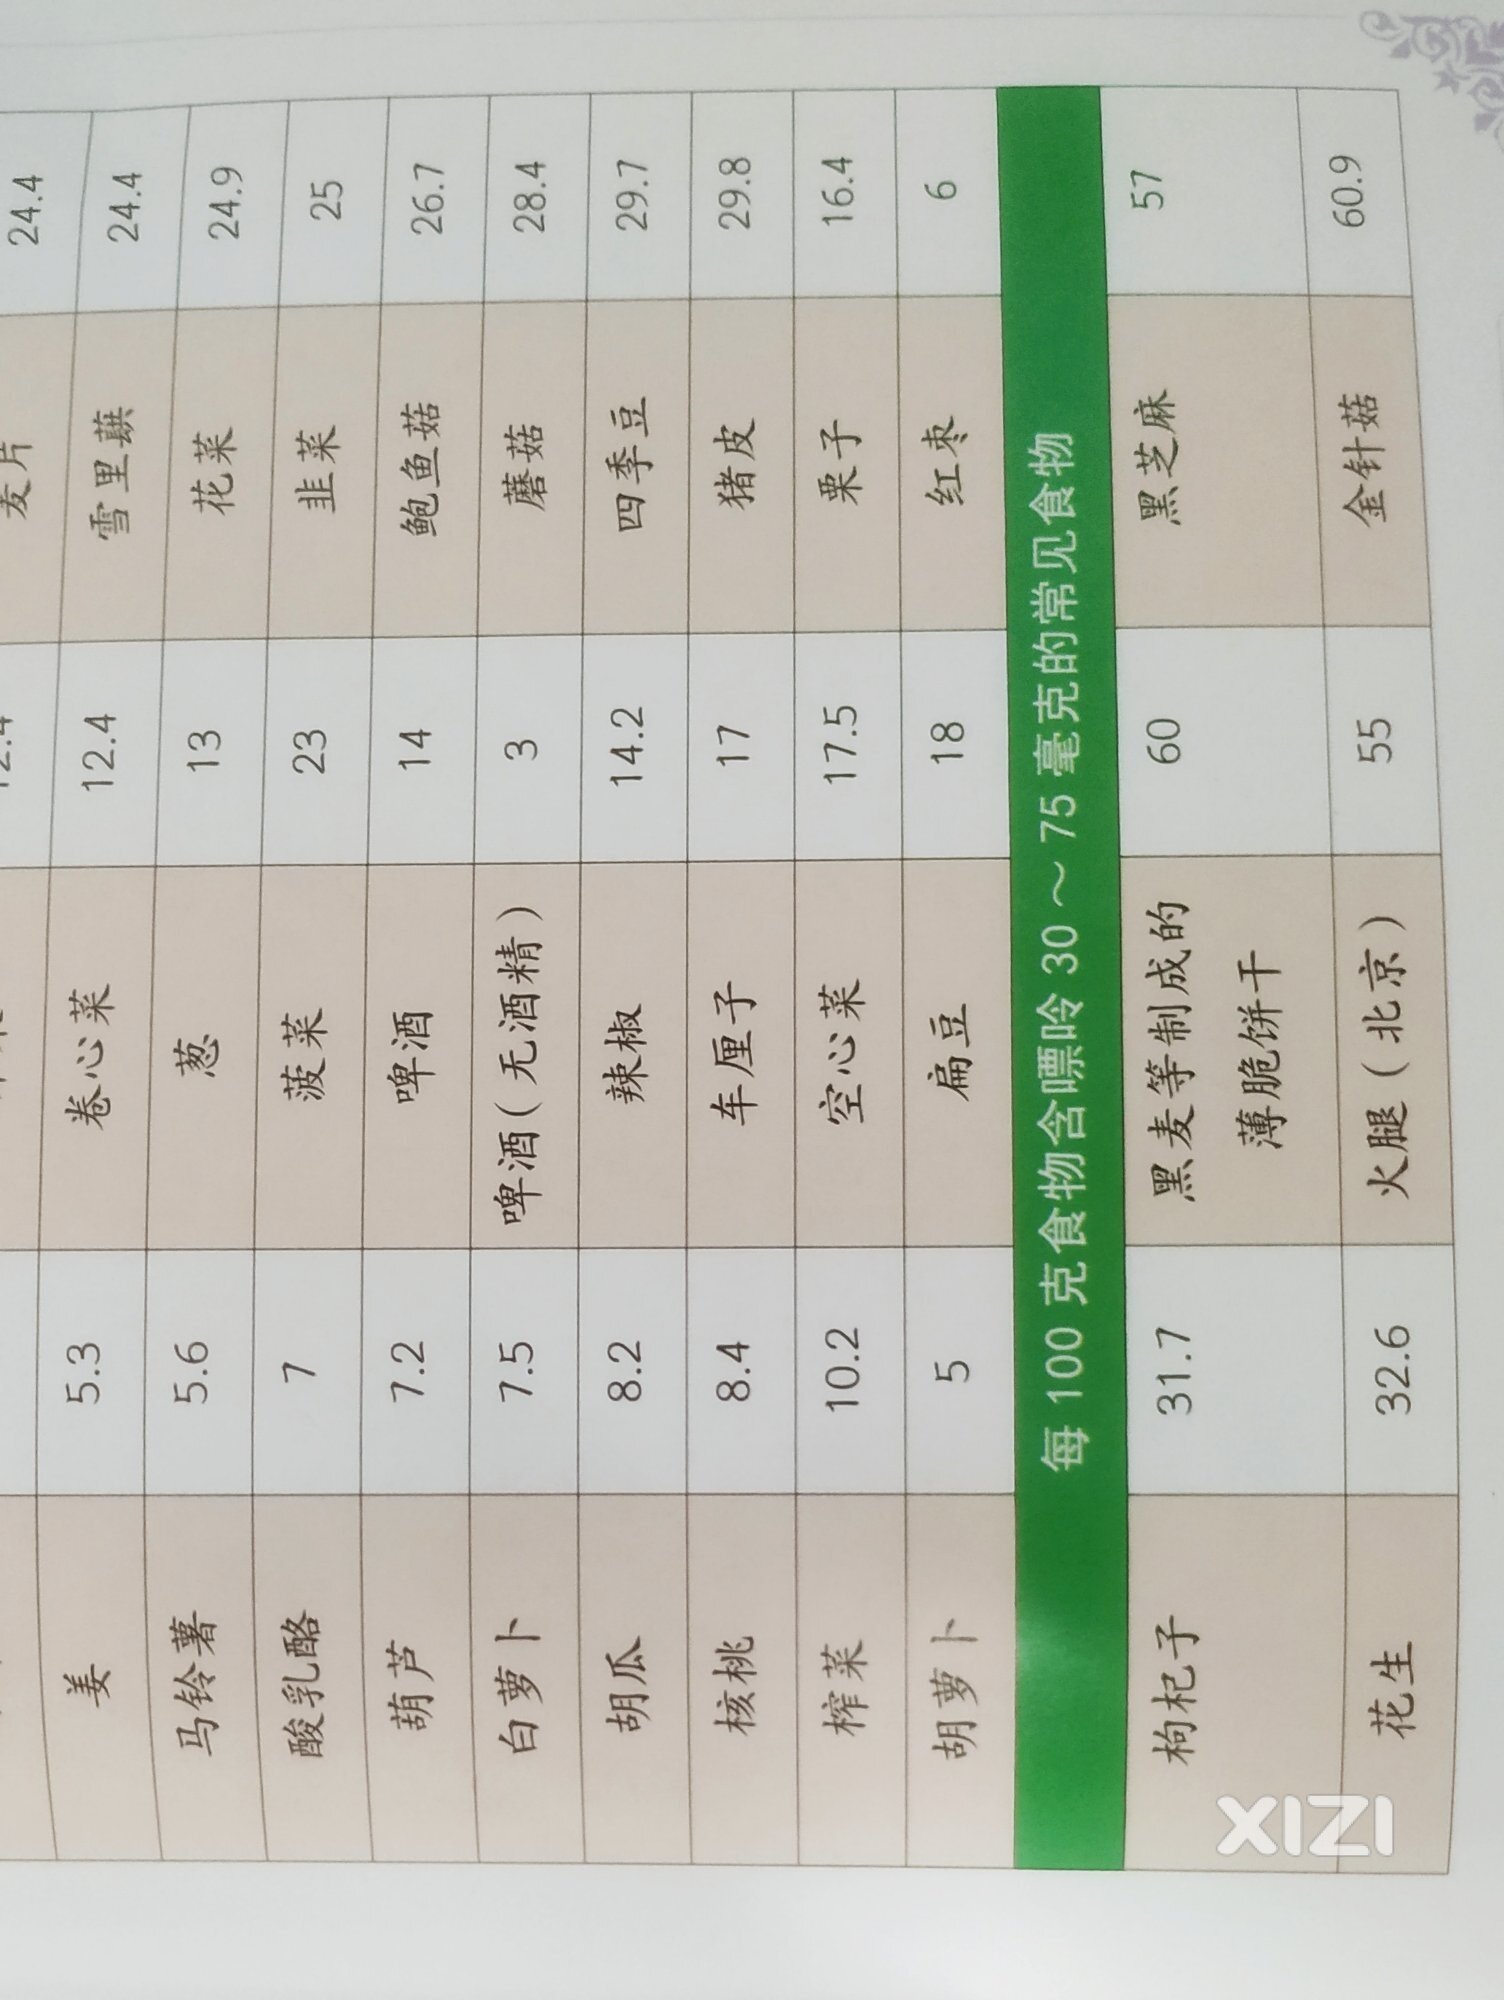 麦片 24.4
姜 5.3 卷心菜 12.4 雪里蕻 24.4
马铃薯 5.6 葱 13 花菜 24.9
酸乳酪 7 菠菜 23 韭菜 25
葫芦 7.2 啤酒 14 鲍鱼菇 26.7
白萝卜 7.5 啤酒(无酒精) 3 蘑菇 28.4
胡瓜 8.2 辣椒 14.2 四季豆 29.7
核桃 8.4 车厘子 17 猪皮 29.8
榨菜 10.2 空心菜 17.5 栗子 16.4
胡萝卜 5 扁豆 18 红枣 6
每 100 克食物含嘌呤 30～75 毫克的常见食物
枸杞子 31.7 黑麦等制成的 60 黑芝麻 57
薄脆饼干
花生 32.6 火腿(北京) 55 金针菇 60.9
XIZI